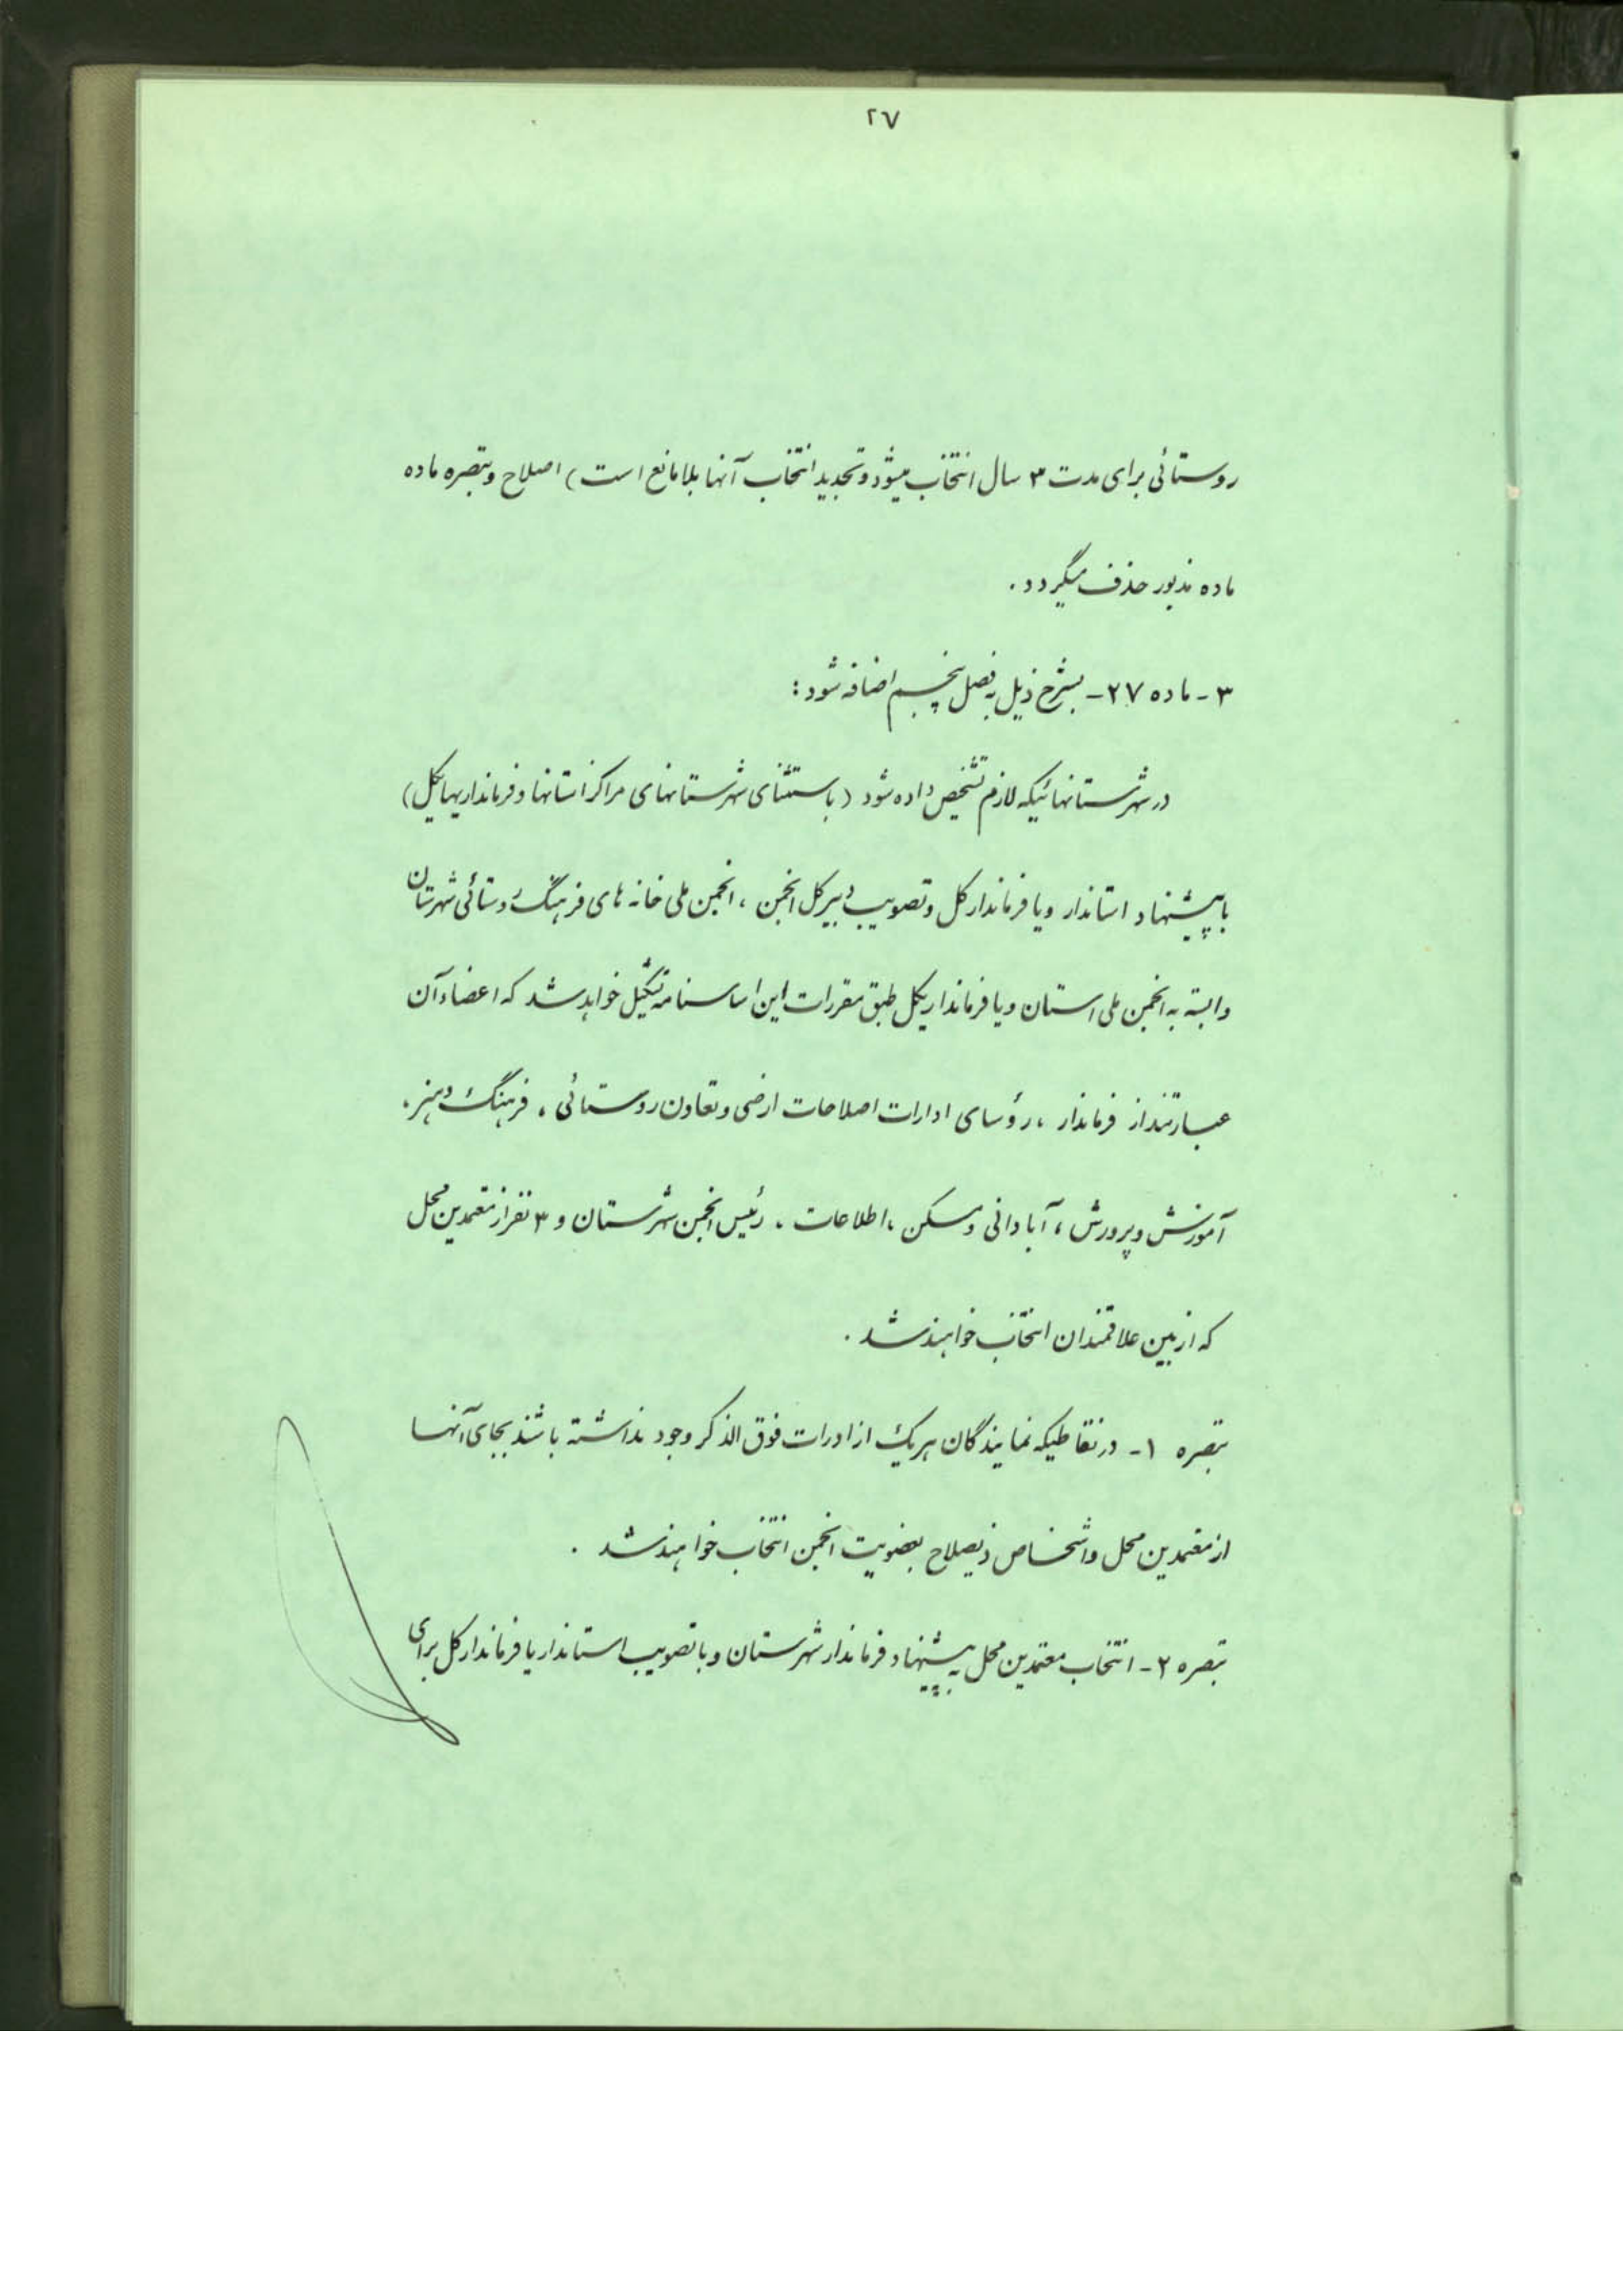 ۲۷
روستائی برای مدت ۳ سال انتخاب میشود و تجدید انتخاب آنها بلامانع است) اصلاح و تبصره ماده
ماده مذبور حذف میگردد.
۳ - ماده ۲۷ - بشرح ذیل به فصل پنجم اضافه شود :
در شهرستانهائیکه لازم تشخیص داده شود (باستثنای شهرستانهای مراکز استانها و فرمانداریهایکل)
با پیشنهاد استاندار و یا فرماندار کل و تصویب دبیر کل انجمن ، انجمن ملی خانه های فرهنگ روستائی شهرستان
وابسته به انجمن ملی استان و یا فرمانداریکل طبق مقررات این اساسنامه تشکیل خواهد شد که اعضاء آن
عبارتند از فرماندار ، رؤسای ادارات اصلاحات ارضی و تعاون روستائی ، فرهنگ و هنر ،
آموزش و پرورش ، آبادانی و مسکن ، اطلاعات ، رئیس انجمن شهرستان و ۳ نفر از معتمدین محل
که از بین علاقمندان انتخاب خواهند شد .
تبصره ۱ - در نقاطیکه نمایندگان هر یک از ادارات فوق الذکر وجود نداشته باشند بجای آنها
از معتمدین محل و اشخاص ذیصلاح بعضویت انجمن انتخاب خواهند شد .
تبصره ۲ - انتخاب معتمدین محل به پیشنهاد فرماندار شهرستان و با تصویب استاندار یا فرماندار کل برای